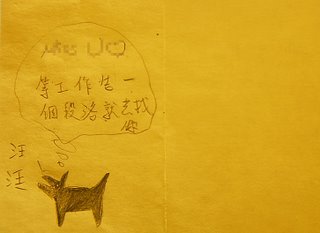 等工作告一
個段落就去找
你
汪
汪